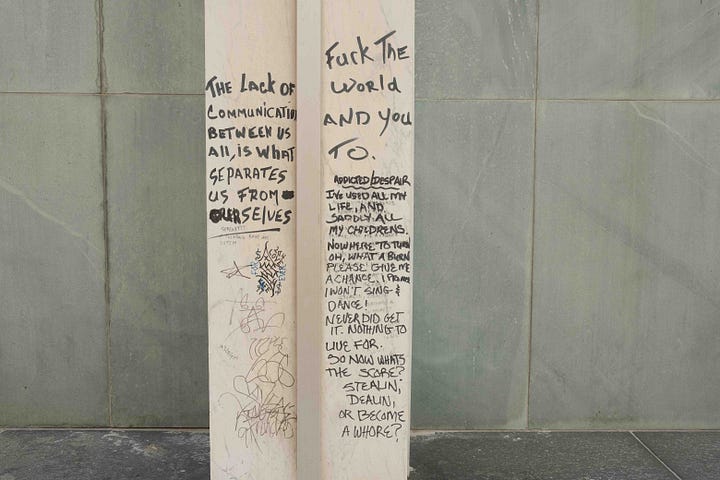 THE LACK OF
COMMUNICATION
BETWEEN US
All, is WHAT
SEPARATES
US FROM
OURSElVES
Fuck The
World
AND YOU
TO.
ADDICTED/DESPAIR
I'VE USED ALL MY
LIFE, AND
SADDLY. ALL
MY CHILDRENS.
NOWHERE TO TURN
OH, WHAT A BURN
PLEASE GIVE ME
A CHANCE, I PROMISE
I WON'T SING &
DANCE!
NEVER DID GET
IT. NOTHING TO
LIVE FOR.
SO NOW WHATS
THE SCORE?
STEALIN,
DEALIN,
OR BECOME
A WHORE?